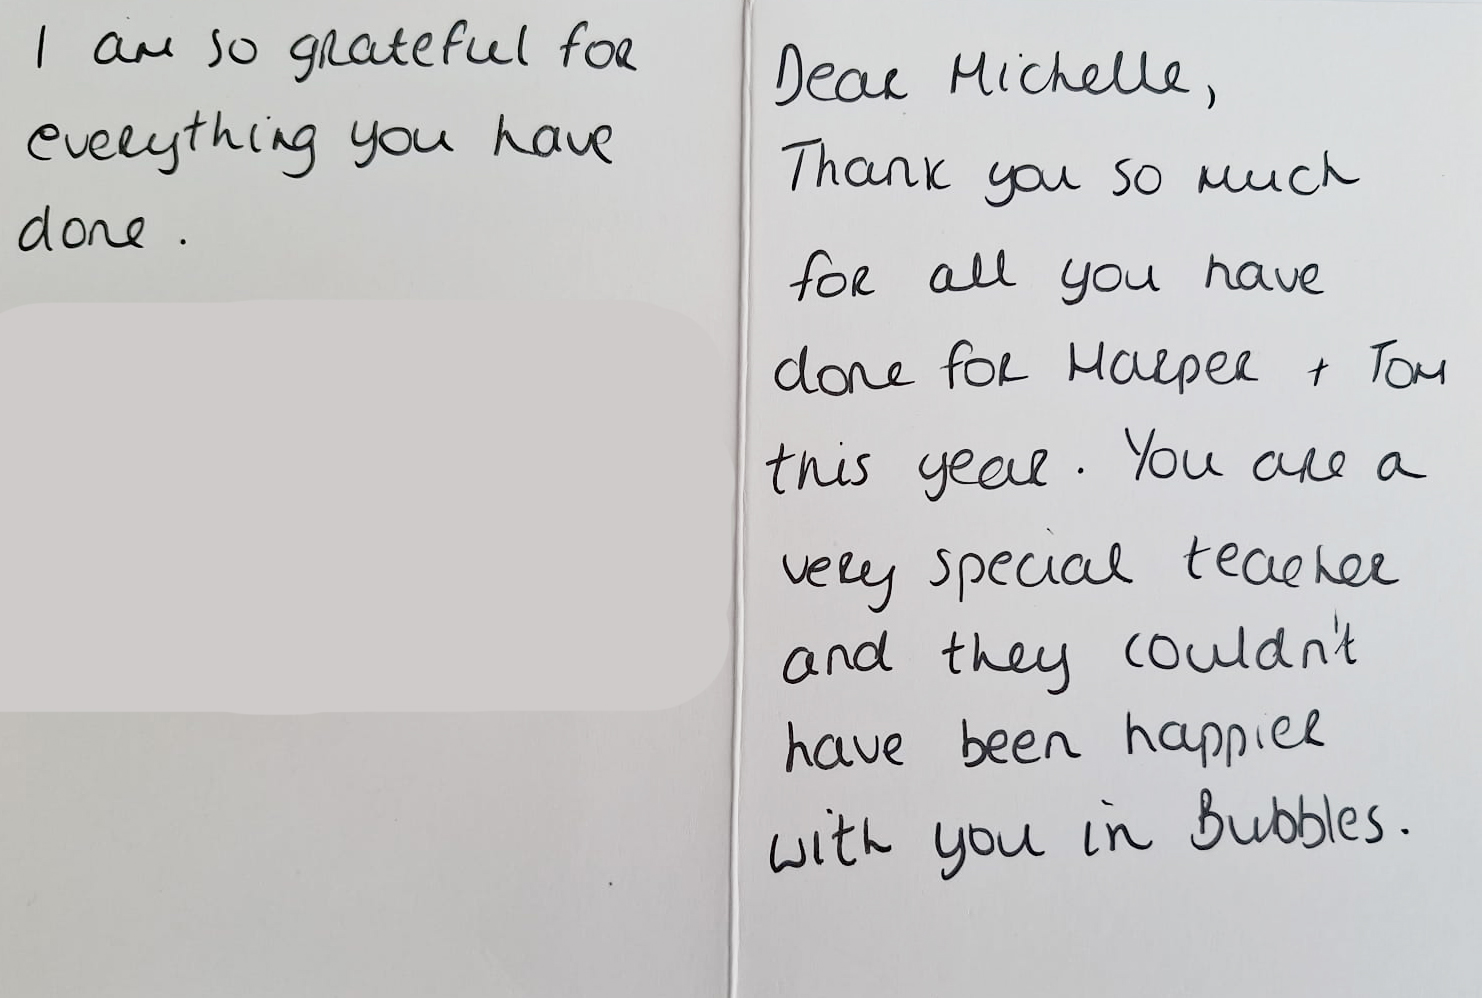 I am so grateful for
everything you have
done.
Dear Michelle,
Thank you so much
for all you have
done for Harper + Tom
this year. You are a
very special teacher
and they couldn't
have been happier
with you in Bubbles.